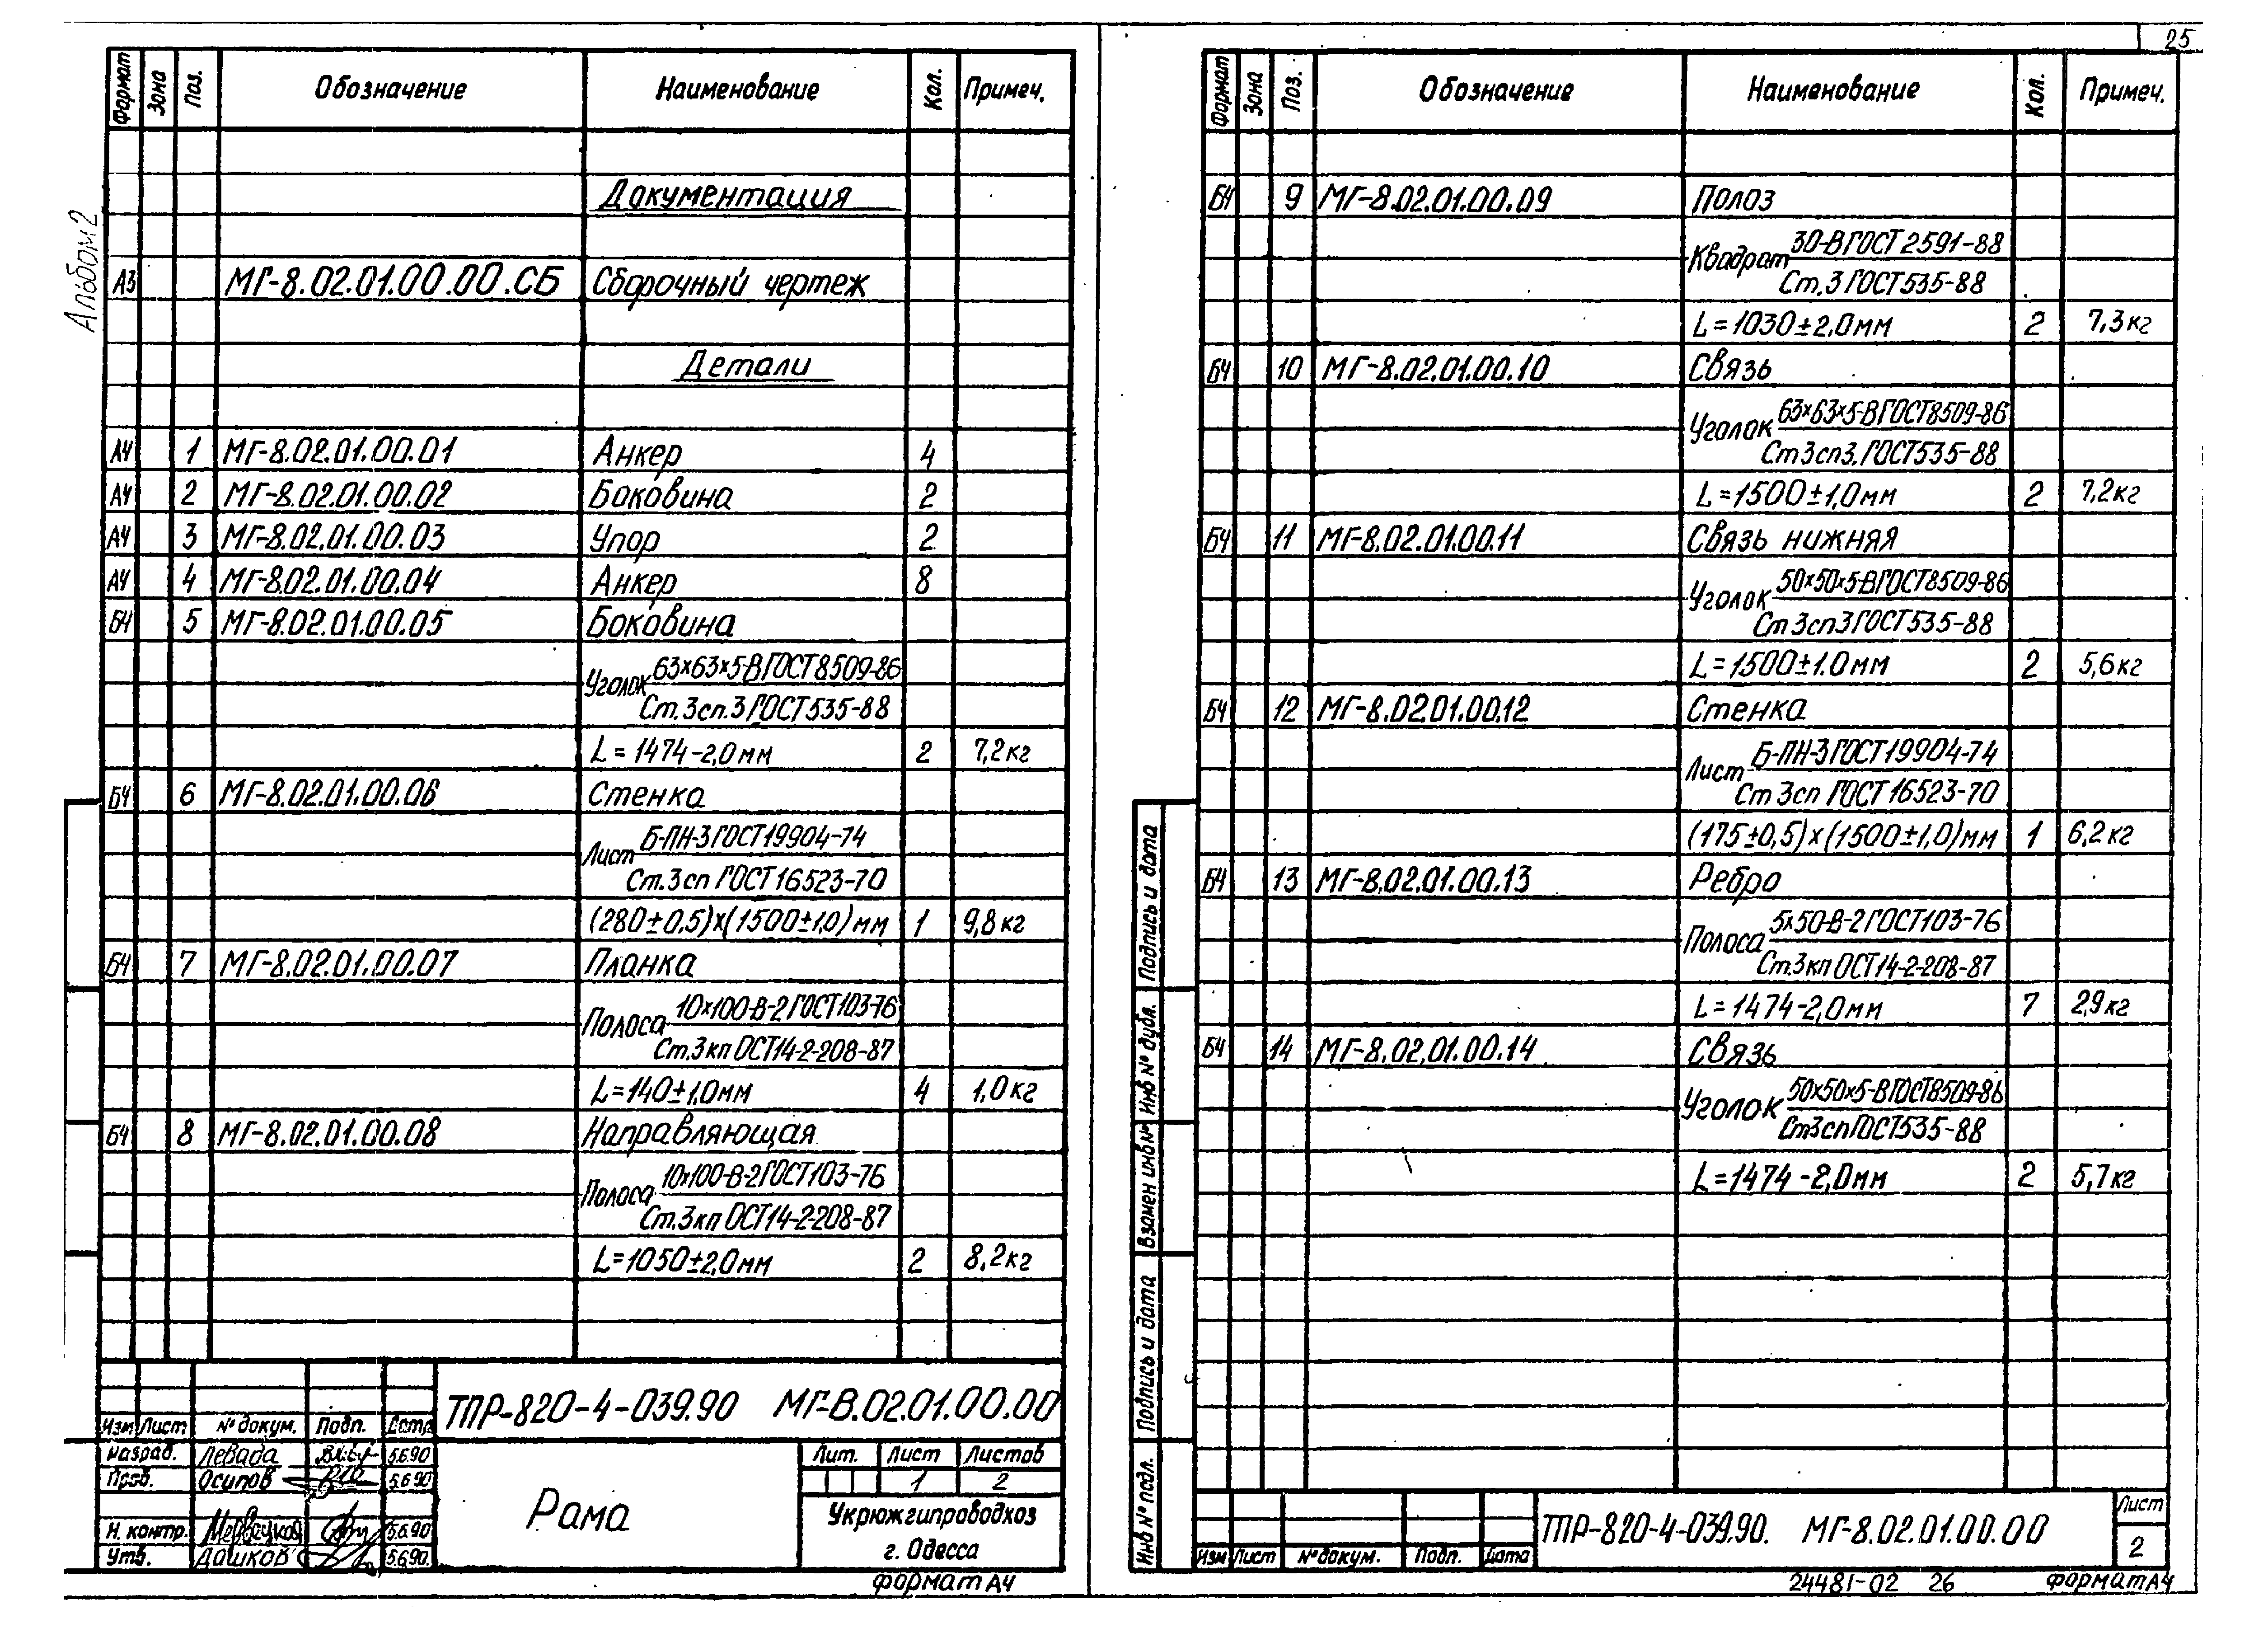 25
Альбом 2
Формат Зона Поз. Обозначение Наименование Кол. Примеч.
Документация
А3 МГ-8.02.01.00.00.СБ Сборочный чертеж
Детали
А4 1 МГ-8.02.01.00.01 Анкер 4
А4 2 МГ-8.02.01.00.02 Боковина 2
А4 3 МГ-8.02.01.00.03 Упор 2
А4 4 МГ-8.02.01.00.04 Анкер 8
БЧ 5 МГ-8.02.01.00.05 Боковина
Уголок 63х63х5-В ГОСТ 8509-86
Ст.3сп.3 ГОСТ 535-88
L=1474-2,0мм 2 7,2кг
БЧ 6 МГ-8.02.01.00.06 Стенка
Лист Б-ПН-3 ГОСТ 19904-74
Ст.3сп ГОСТ 16523-70
(280±0,5)х(1500±1,0)мм 1 9,8кг
БЧ 7 МГ-8.02.01.00.07 Планка
Полоса 10х100-В-2 ГОСТ 103-76
Ст.3кп ОСТ14-2-208-87
L=140±1,0мм 4 1,0кг
БЧ 8 МГ-8.02.01.00.08 Направляющая
Полоса 10х100-В-2 ГОСТ 103-76
Ст.3кп ОСТ14-2-208-87
L=1050±2,0мм 2 8,2кг
ТПР-820-4-039.90 МГ-8.02.01.00.00
Изм Лист № докум. Подп. Дата
Разраб. Левада 5.6.90
Пров. Осипов 5.6.90
Н. контр. 5.6.90
Утв. Дашков 5.6.90.
Рама
Лит. Лист Листов
1 2
Укрюжгипроводхоз
г. Одесса
формат А4
Формат Зона Поз. Обозначение Наименование Кол. Примеч.
БЧ 9 МГ-8.02.01.00.09 Полоз
Квадрат 30-В ГОСТ 2591-88
Ст.3 ГОСТ 535-88
L=1030±2,0мм 2 7,3кг
БЧ 10 МГ-8.02.01.00.10 Связь
Уголок 63х63х5-В ГОСТ 8509-86
Ст3сп3. ГОСТ 535-88
L=1500±1,0мм 2 7,2кг
БЧ 11 МГ-8.02.01.00.11 Связь нижняя
Уголок 50х50х5-В ГОСТ 8509-86
Ст3сп3 ГОСТ 535-88
L=1500±1.0мм 2 5,6кг
БЧ 12 МГ-8.02.01.00.12 Стенка
Лист Б-ПН-3 ГОСТ 19904-74
Ст3сп ГОСТ 16523-70
(175±0,5)х(1500±1,0)мм 1 6,2кг
БЧ 13 МГ-8.02.01.00.13 Ребро
Полоса 5х50-В-2 ГОСТ 103-76
Ст.3кп ОСТ14-2-208-87
L=1474-2,0мм 7 2,9кг
БЧ 14 МГ-8.02.01.00.14 Связь
Уголок 50х50х5-В ГОСТ 8509-86
Ст3сп ГОСТ 535-88
L=1474-2,0мм 2 5,7кг
Подпись и дата
Инв № дубл.
Взамен инв №
Подпись и дата
Инв № подл.
Изм Лист № докум. Подп. Дата
ТПР-820-4-039.90. МГ-8.02.01.00.00
Лист
2
24481-02 26 формат А4